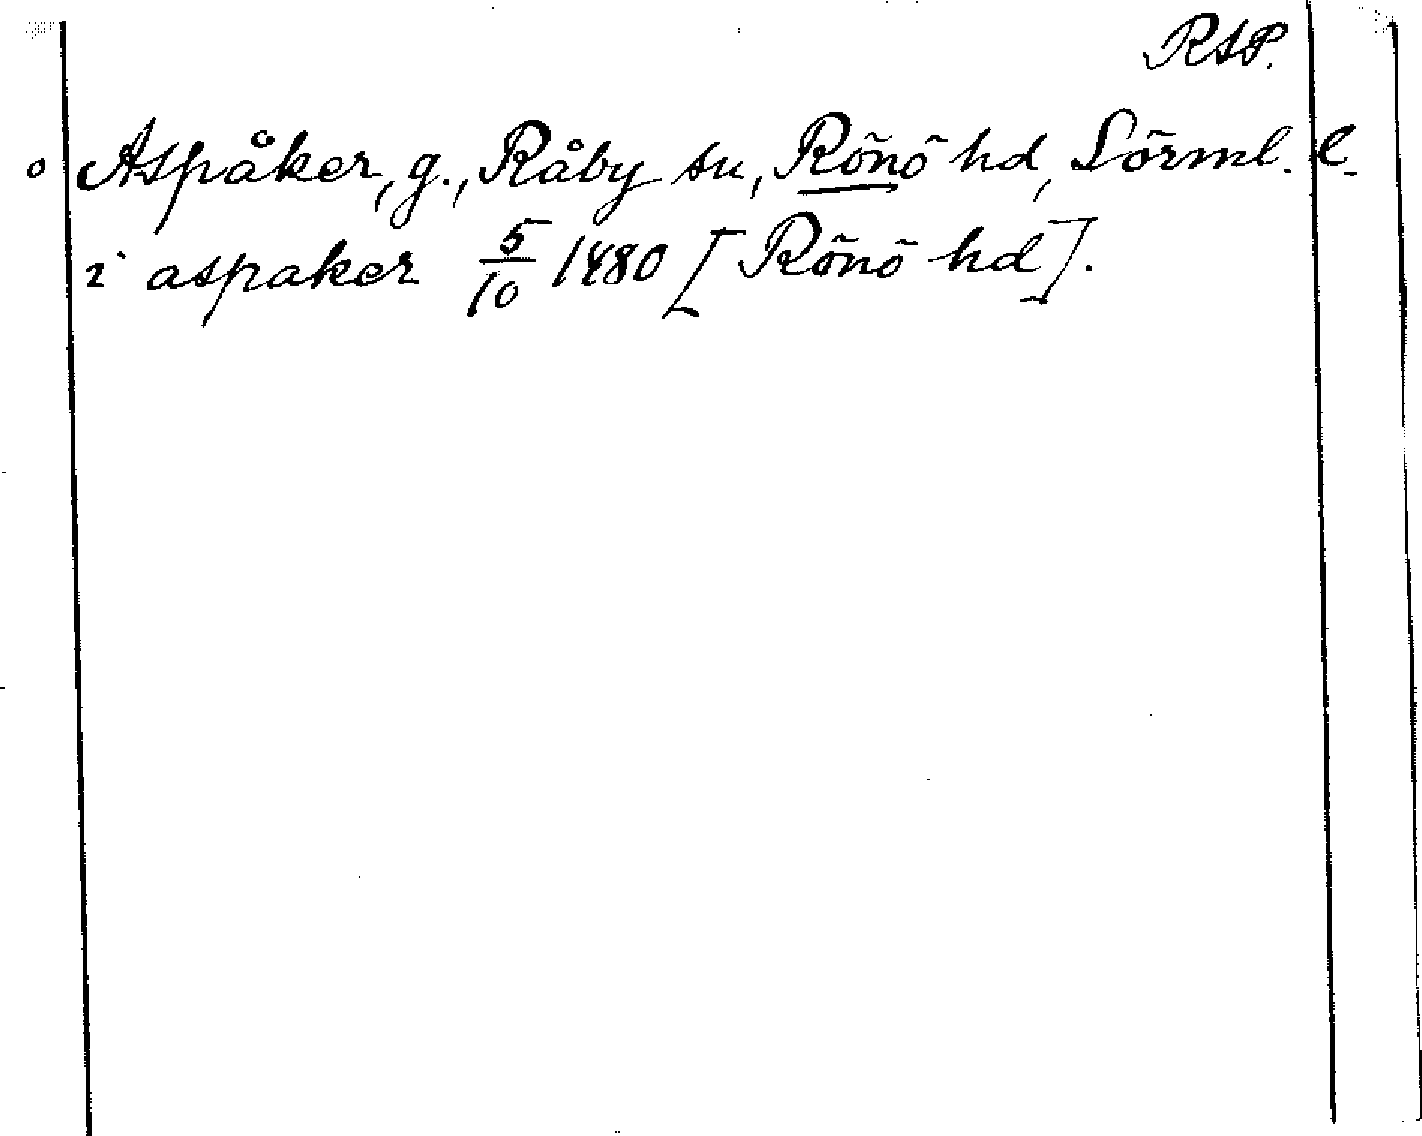 RAP.
o Aspåker, g., Råby sn, Rönö hd, Sörml. l.
i aspaker 5/10 1480 [Rönö hd].